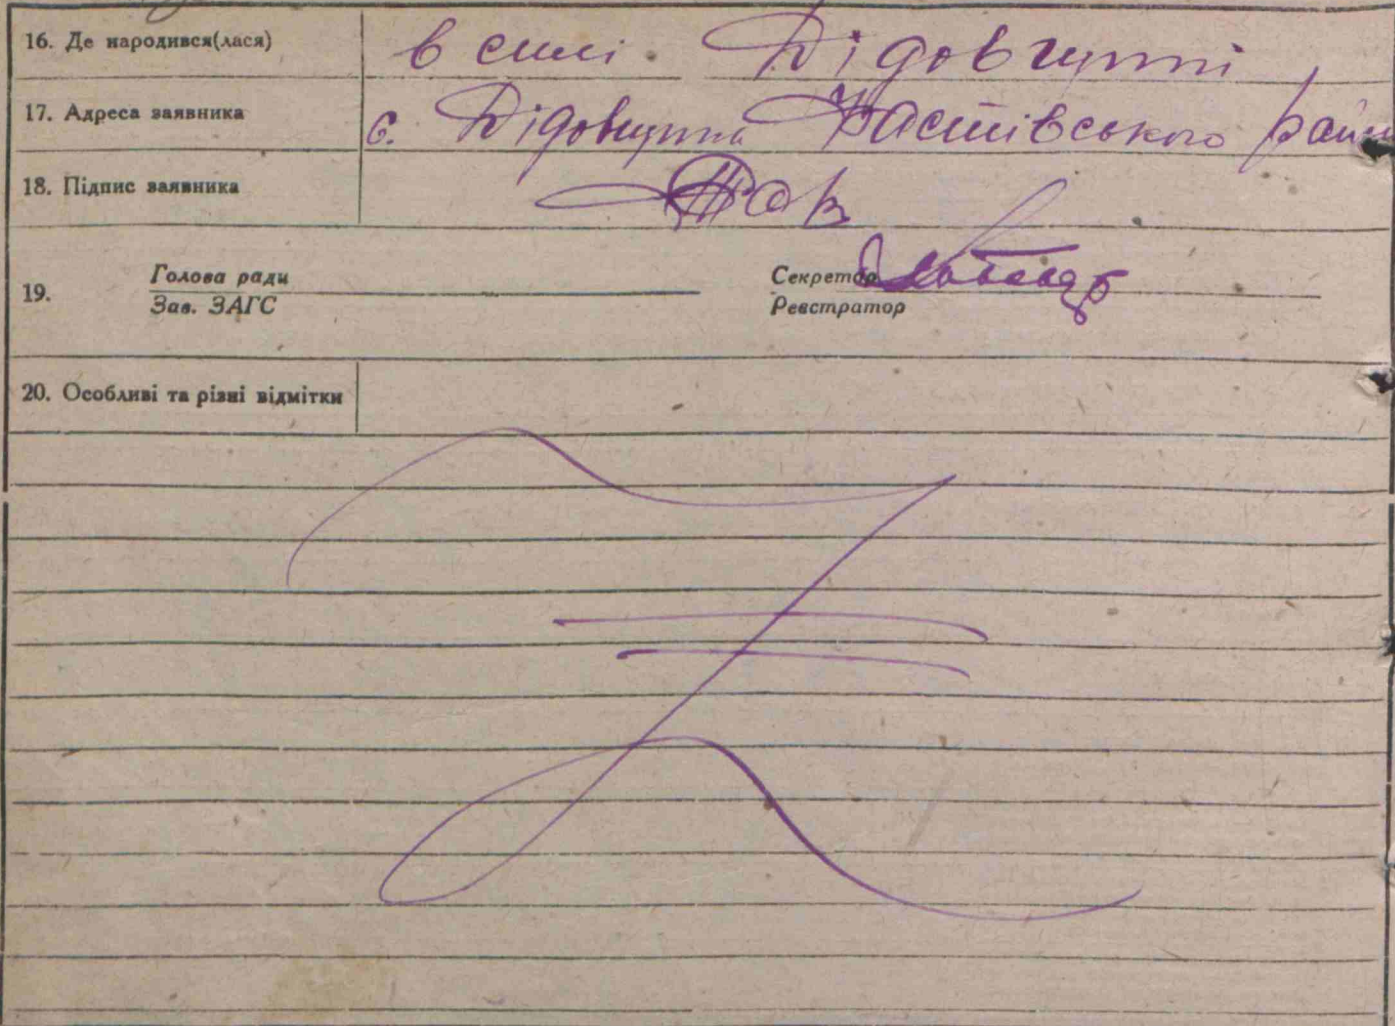 16. Де народився(лася) в селі Дідовщині
17. Адреса заявника с. Дідовщина Фастівського райо
18. Підпис заявника
19. Голова ради Секретар
Зав. ЗАГС Реєстратор
20. Особливі та різні відмітки